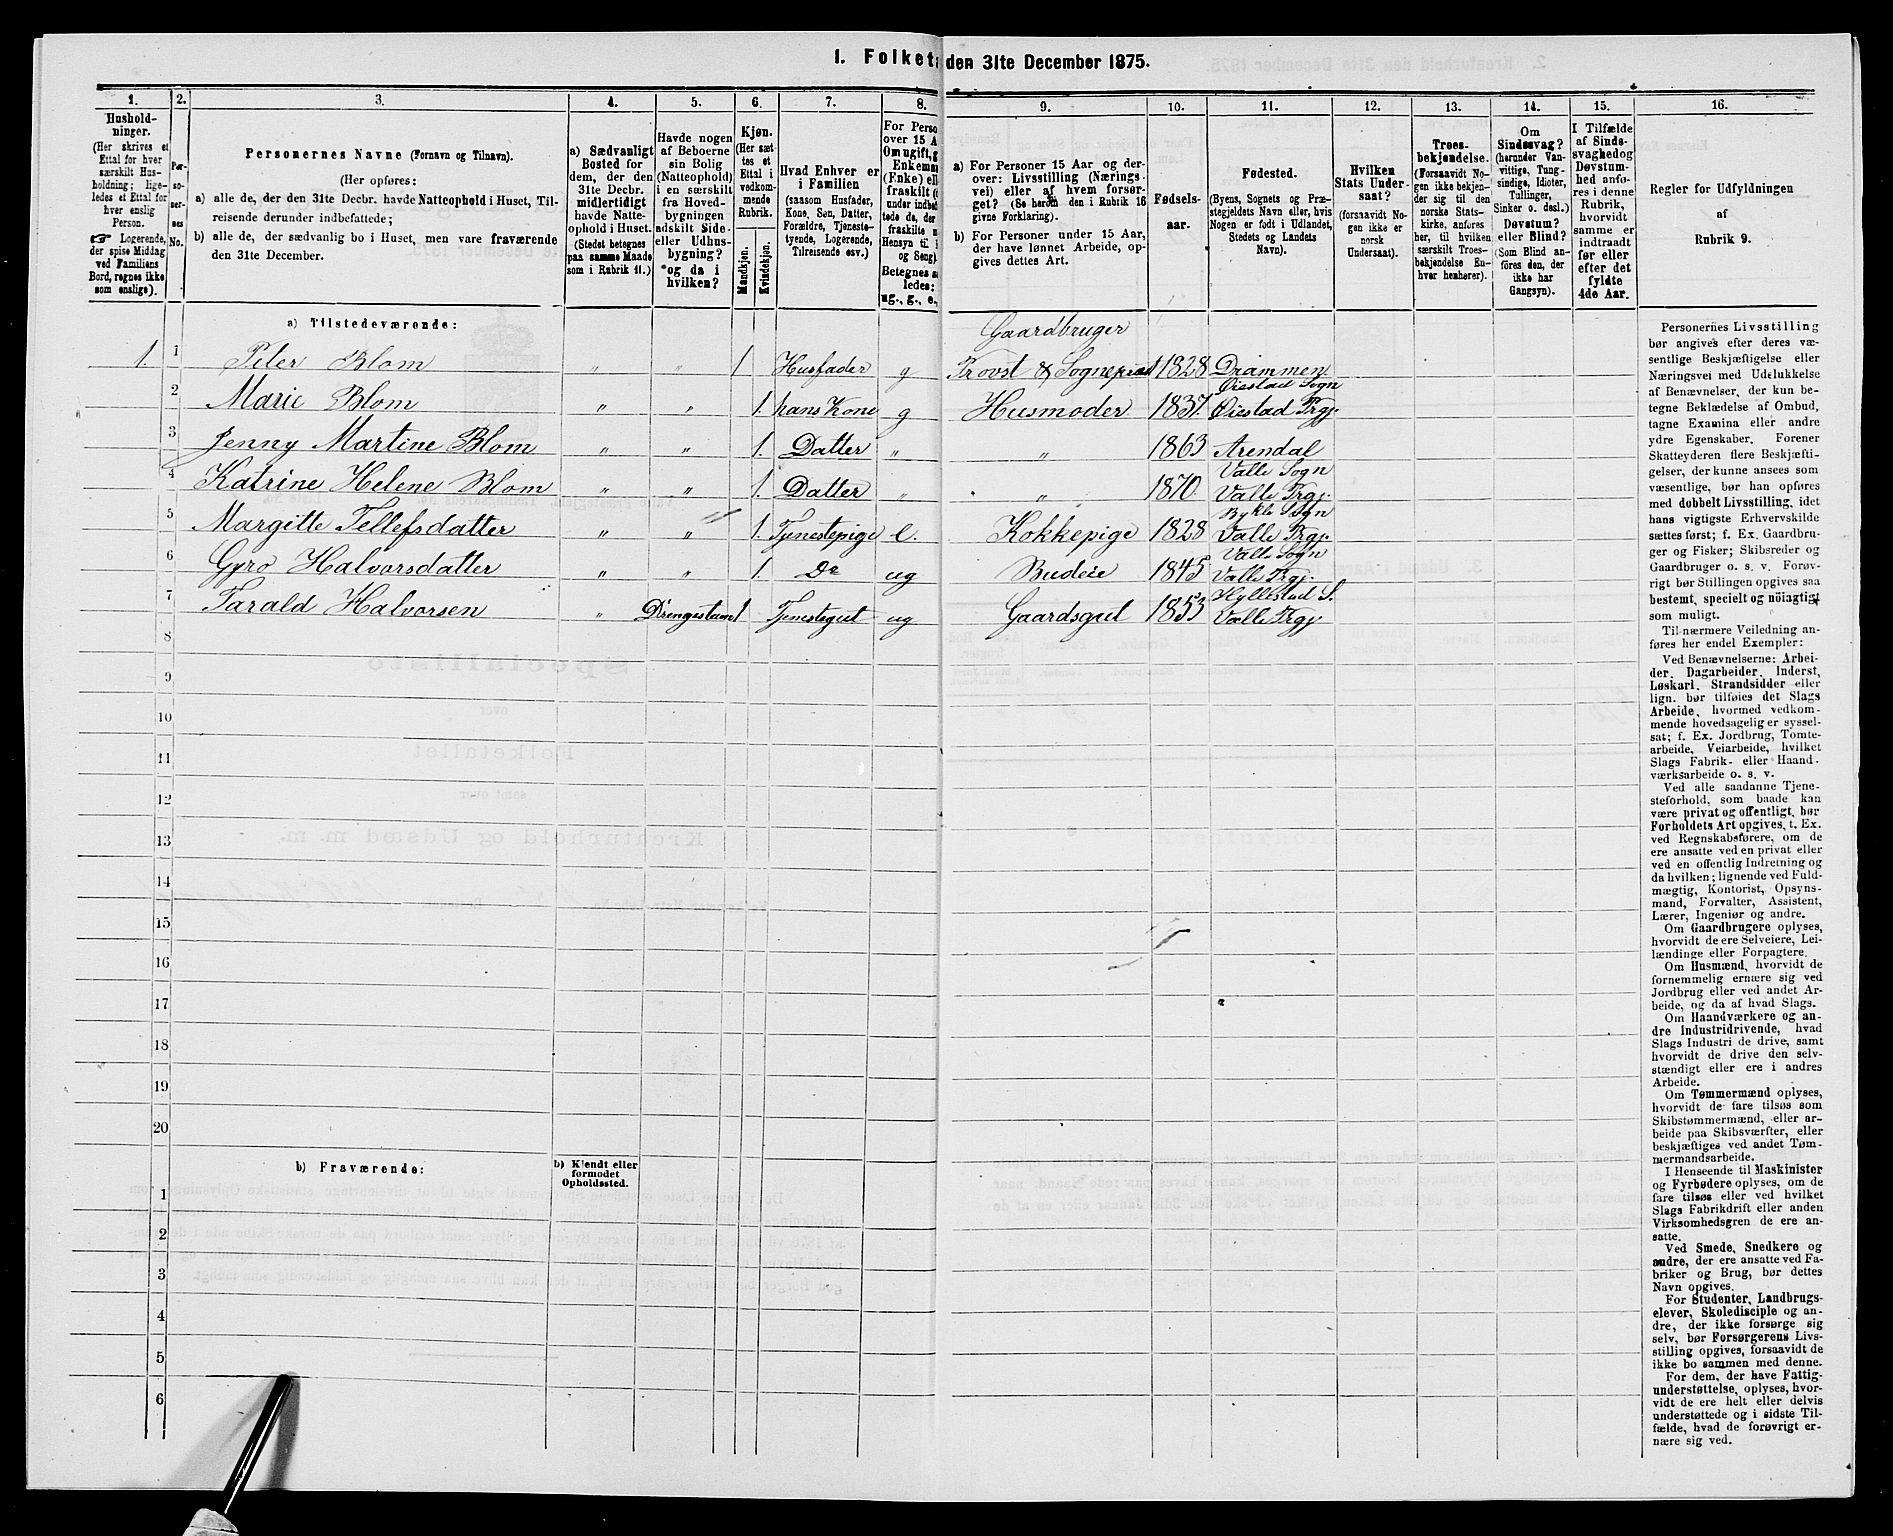 1. Folket den 31te December 1875.
1. 2. 3. 4. 5. 6. 7. 8. 9. 10. 11. 12. 13. 14. 15. 16.
Hushold-
ninger.
(Her skrives et
Ettal for hver
særskilt Hus-
holdning; lige-
ledes et Ettal for
hver enslig
Person.
☞ Logerende,
der spise Middag
ved Familiens
Bord, regnes ikke
som enslige).
Per-
so-
ner-
nes
No.
Personernes Navne (Fornavn og Tilnavn).
(Her opføres:
a) alle de, der den 31te Decbr. havde Natteophold i Huset, Til-
reisende derunder indbefattede;
b) alle de, der sædvanlig bo i Huset, men vare fraværende
den 31te December.
a) Sædvanligt
Bosted for
dem, der den
31te Decbr.
midlertidigt
havde Natte-
ophold i Huset.
(Stedet betegnes
paa samme Maade
som i Rubrik 11.)
Havde nogen
af Beboerne
sin Bolig
(Natteophold)
i en særskilt
fra Hoved-
bygningen
adskilt Side-
eller Udhus-
bygning?
og da i
hvilken?
Kjøn.
(Her sæt-
tes et
Ettal i
vedkom-
mende
Rubrik.
Mandkjøn.
Kvindekjøn.
Hvad Enhver er
i Familien
(saasom Husfader,
Kone, Søn, Datter,
Forældre, Tjeneste-
tyende, Logerende,
Tilreisende osv.)
For Perso
over 15 A
Om ugift, g
Enkemm
(Enke) ell
fraskilt (
under indbe
tede de, der
fraskilte m
Hensyn til
og Seng).
Betegnes s
ledes:
ug., g., e.,
a) For Personer 15 Aar og der-
over: Livsstilling (Nærings-
vei) eller af hvem forsør-
get? (Se herom den i Rubrik 16
givne Forklaring).
b) For Personer under 15 Aar,
der have lønnet Arbeide, op-
gives dettes Art.
Fødsels-
aar.
Fødested.
(Byens, Sognets og Præ-
stegjeldets Navn eller, hvis
Nogen er født i Udlandet,
Stedets og Landets
Navn).
Hvilken
Stats Under-
saat?
(forsaavidt No-
gen ikke er
norsk
Undersaat).
Troes-
bekjendelse.
(Forsaavidt No-
gen ikke bekjen-
der sig til den
norske Stats-
kirke, anføres
her, til hvilken
særskilt Troes-
bekjendelse En-
hver henhører).
Om
Sindssvag?
(herunder Van-
vittige, Tung-
sindige, Idioter,
Tullinger,
Sinker o. desl.)
Døvstum?
eller Blind?
(Som Blind an-
føres den, der
ikke har
Gangsyn).
I Tilfælde
af Sinds-
svaghed og
Døvstum-
hed anfø-
res i denne
Rubrik,
hvorvidt
samme er
indtraadt
før eller
efter det
fyldte
4de Aar.
Regler for Udfyldningen
af
Rubrik 9.
a) Tilstedeværende:
Gaardbruger
1. 1 Peter Blom „ „ 1 Husfader g Provst & Sognepræst 1828 Drammen
Øiestad Sogn
2 Marie Blom „ „ 1. hans Kone g Husmoder 1837. Øiestad Prgj.
3 Jenny Martine Blom „ „ 1. Datter „ „ 1863 Arendal
Valle Sogn
4 Katrine Helene Blom „ „ 1. Datter „ „ 1870. Valle Prgj.
Bykle Sogn
5 Margitte Tellefsdatter „ „ 1. Tjenestepige e. Kokkepige 1828 Valle Prgj.
Valle Sogn
6 Gyro Halvorsdatter „ „ 1. Do ug Budeie 1845 Valle Prgj.
Hyllestad S.
7 Tarald Halvorsen „ Drengestuen 1 Tjenestegut ug Gaardsgut 1853 Valle Prgj
8
9
10
11
12
13
14
15
16
17
18
19
20
b) Fraværende:
b) Kjendt eller
formodet
Opholdssted.
1
2
3
4
5
6
Personernes Livsstilling
bør angives efter deres væ-
sentlige Beskjæftigelse eller
Næringsvei med Udelukkelse
af Benævnelser, der kun be-
tegne Beklædelse af Ombud,
tagne Examina eller andre
ydre Egenskaber. Forener
Skatteyderen flere Beskjæfti-
gelser, der kunne ansees som
væsentlige, bør han opføres
med dobbelt Livsstilling, idet
hans vigtigste Erhvervskilde
sættes først; f. Ex. Gaardbru-
ger og Fisker; Skibsreder og
Gaardbruger o. s. v. Forøv-
rigt bør Stillingen opgives saa
bestemt, specielt og nøiagtigt
som muligt.
Til nærmere Veiledning an-
føres her endel Exempler:
Ved Benævnelserne: Arbei-
der, Dagarbeider, Inderst,
Løskarl, Strandsidder eller
lign. bør tilføies det Slags
Arbeide, hvormed vedkom-
mende hovedsagelig er syssel-
sat; f. Ex. Jordbrug, Tomte-
arbeide, Veiarbeide, hvilket
Slags Fabrik- eller Haand-
værksarbeide o. s. v.
Ved alle saadanne Tjene-
steforhold, som baade kan
være privat og offentligt, bør
Forholdets Art opgives, t. Ex.
ved Regnskabsførere, om de
ere ansatte ved en privat eller
ved en offentlig Indretning og
da hvilken; lignende ved Fuld-
mægtig, Kontorist, Opsyns-
mand, Forvalter, Assistent,
Lærer, Ingeniør og andre.
Om Gaardbrugere oplyses,
hvorvidt de ere Selveiere, Lei-
lændinge eller Forpagtere.
Om Husmænd, hvorvidt de
fornemmelig ernære sig ved
Jordbrug eller ved andet Ar-
beide, og da af hvad Slags.
Om Haandværkere og an-
dre Industridrivende, hvad
Slags Industri de drive, samt
hvorvidt de drive den selv-
stændigt eller ere i andres
Arbeide.
Om Tømmermænd oplyses,
hvorvidt de fare tilsøs som
Skibstømmermænd, eller ar-
beide paa Skibsværfter, eller
beskjæftiges ved andet Tøm-
mermandsarbeide.
I Henseende til Maskinister
og Fyrbødere oplyses, om de
fare tilsøs eller ved hvilket
Slags Fabrikdrift eller anden
Virksomhedsgren de ere an-
satte.
Ved Smede, Snedkere og
andre, der ere ansatte ved Fa-
briker og Brug, bør dettes
Navn opgives.
For Studenter, Landbrugs-
elever, Skoledisciple og an-
dre, der ikke forsørge sig
selv, bør Forsørgerens Livs-
stilling opgives, forsaavidt de
ikke bo sammen med denne.
For dem, der have Fattig-
understøttelse, oplyses, hvor-
vidt de ere helt eller delvis
understøttede og i sidste Til-
fælde, hvad de forøvrigt er-
nære sig ved.